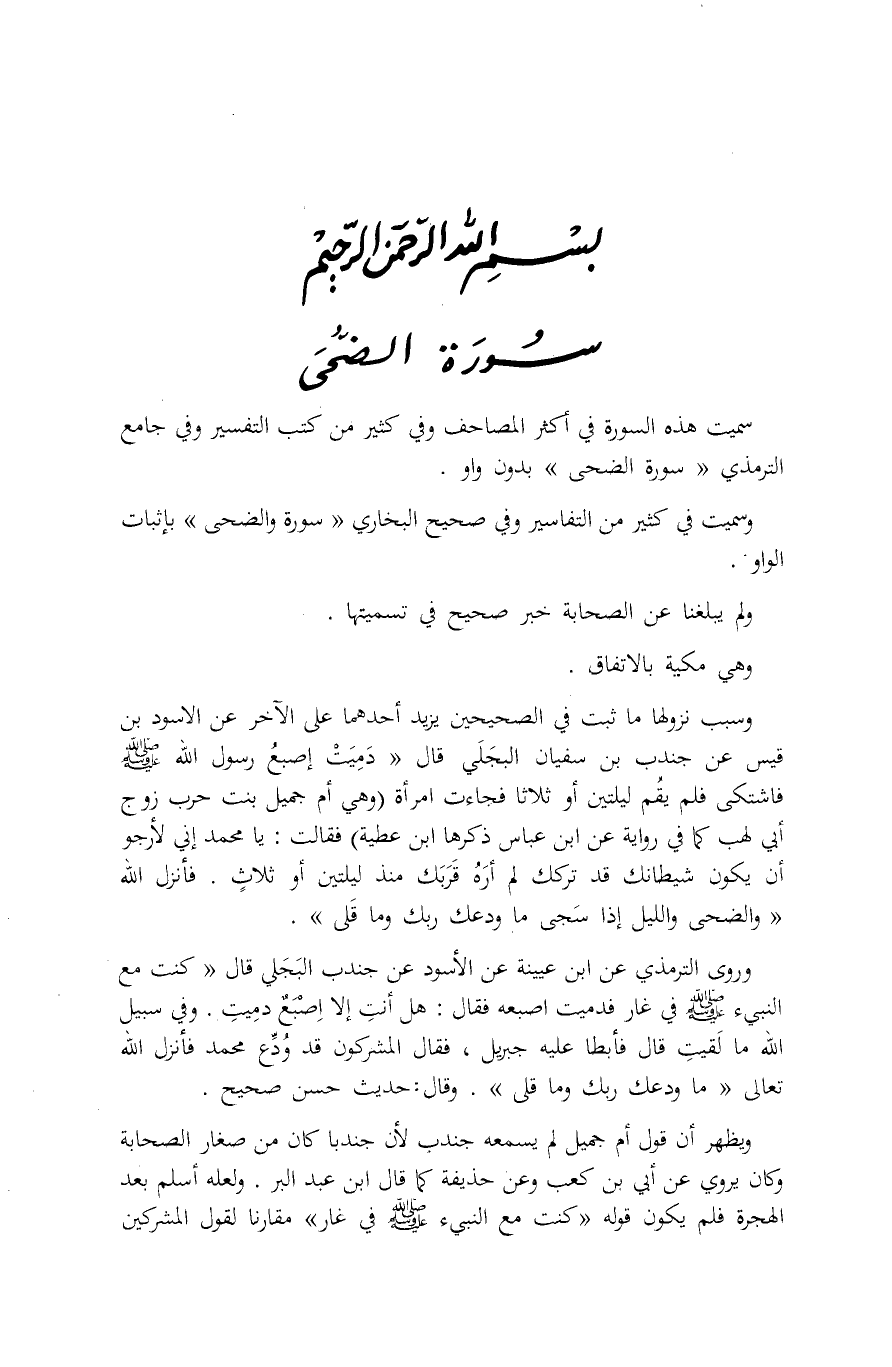 بِسْمِ اللهِ الرَّحْمَنِ الرَّحِيْمِ
سُورَة الضُّحَى
سميت هذه السورة في أكثر المصاحف وفي كثير من كتب التفسير وفي جامع
الترمذي « سورة الضحى » بدون واو .
وسميت في كثير من التفاسير وفي صحيح البخاري « سورة والضحى » بإثبات
الواو .
ولم يبلغنا عن الصحابة خبر صحيح في تسميتها .
وهي مكية بالاتفاق .
وسبب نزولها ما ثبت في الصحيحين يزيد أحدهما على الآخر عن الاسود بن
قيس عن جندب بن سفيان البجَلَي قال « دَمِيَتْ إصبعُ رسول الله ﷺ
فاشتكى فلم يقُم ليلتين أو ثلاثا فجاءت امرأة (وهي أم جميل بنت حرب زوج
أبي لهب كما في رواية عن ابن عباس ذكرها ابن عطية) فقالت : يا محمد إني لأرجو
أن يكون شيطانك قد تركك لم أرَهُ قَرَبَك منذ ليلتين أو ثلاثٍ . فأنزل الله
« والضحى والليل إذا سَجى ما ودعك ربك وما قَلى » .
وروى الترمذي عن ابن عيينة عن الأسود عن جندب البَجَلي قال « كنت مع
النبيء ﷺ في غار فدميت اصبعه فقال : هل أنتِ إلا اِصْبَعٌ دمِيتِ . وفي سبيل
الله ما لَقيتِ قال فأبطا عليه جبريل ، فقال المشركون قد وُدِّع محمد فأنزل الله
تعالى « ما ودعك ربك وما قلى » . وقال: حديث حسن صحيح .
ويظهر أن قول أم جميل لم يسمعه جندب لأن جندبا كان من صغار الصحابة
وكان يروي عن أبي بن كعب وعن حذيفة كما قال ابن عبد البر . ولعله أسلم بعد
الهجرة فلم يكون قوله «كنت مع النبيء ﷺ في غار» مقارنا لقول المشركين